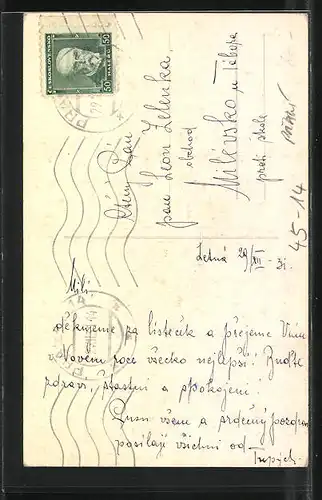 ČESKOSLOVENSKO
50 HALÉŘŮ 50
PRAHA
Ctěný Pán
pan Leon Zelenka,
obchod
Milevsko u Tábora
proti škole
45-14
Letná 29/XII - 31.
Milí
děkujeme za lísteček a přejeme Vám
v Novém roce všecko nejlepší! Buďte
zdrávi, šťastni a spokojeni!
všem a srdečný pozdrav
posílají všichni od